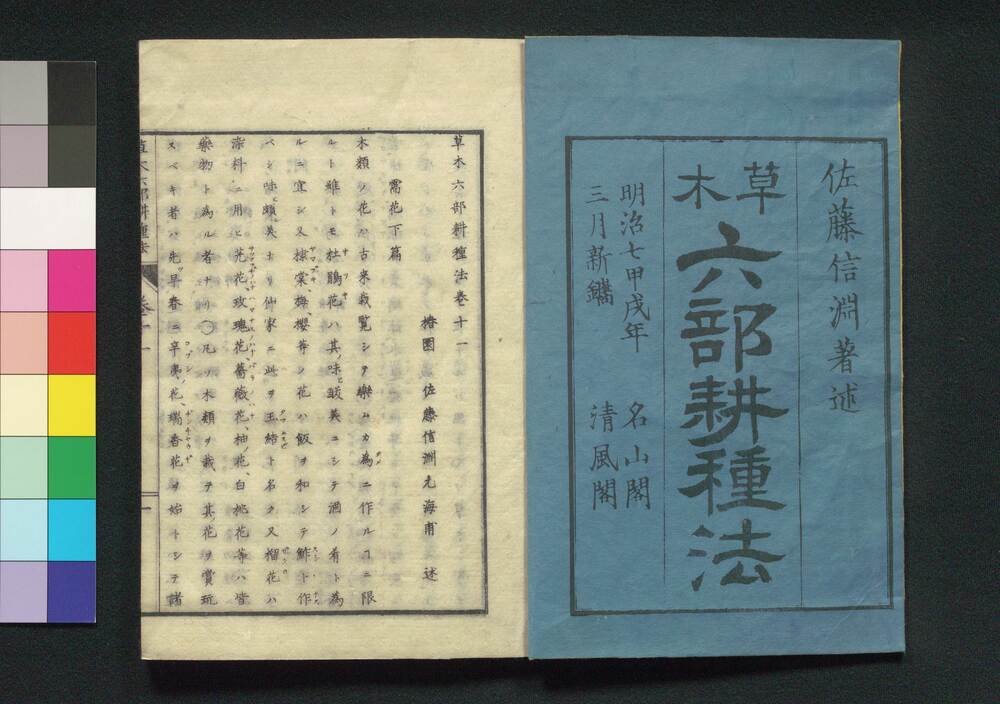 佐藤信淵著述
草木
六部耕種法
明治七甲戌年 名山閣
三月新鐫 清風閣
草木六部耕種法卷十一
椿園 佐藤信淵元海甫 述
需花下篇
木類ノ花ハ古来栽覧シヲ樂ムカ為ニ作ルヿニ限
ルト雖トモ杜鵑花ハ其ノ味ヒ最美ニシテ酒ノ肴ト為
ルニ宜シ又棣棠梅櫻等ノ花ハ飯ヲ和シテ鮓ト作
ベシ味ヒ頗ル美ナリ仙家ニ此ヲ玉鮓ト名ク又榴花ハ
染料ニ用ヒ芫花玫瑰花薔薇花柚ノ花白桃花等ハ皆
藥物ト為ル者ナリ○凡ソ木類ヲ栽テ其花ヲ賞玩
スベキ者ハ先ツ早春ニ辛夷花瑞香花ヲ始トシテ諸
草木六部耕種法 卷十一 一